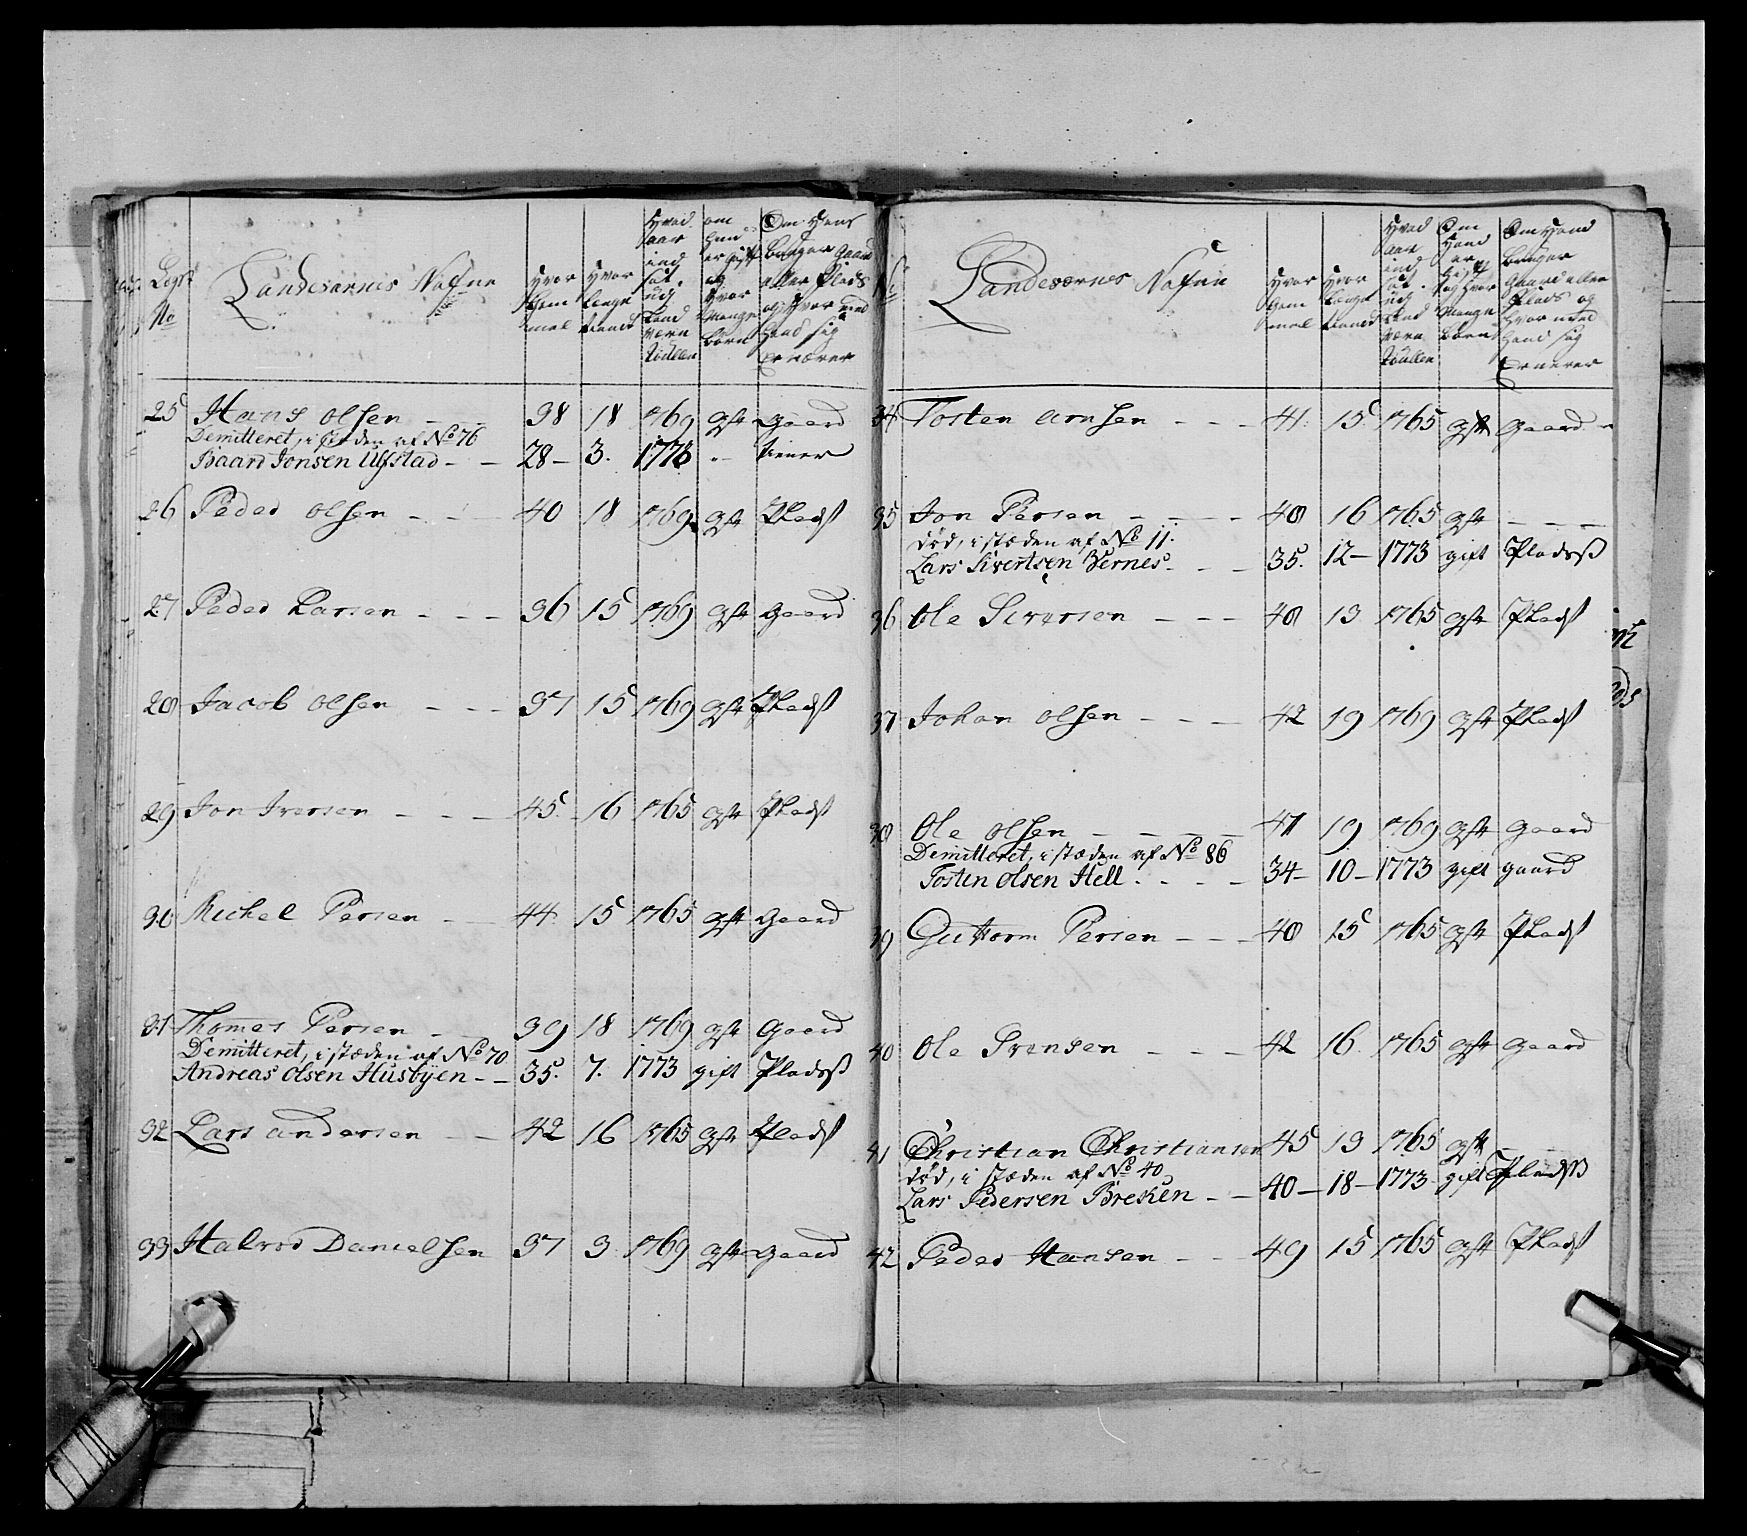 No
Landevernes Nafne
Hvor gammel
Hvor længe tient
Hvad aar ind sat ud Land værn Rullen
om hand er gift og Hvor mange børn
Om Hans bruger gaard eller Plads og Hvor med Hand sig Ernærer
25 Hans olsen 38 18 1769 gift gaard
Demitteret, i stæden af No 76
Baard Jonsen Ulfstad - - 28 - 3. 1773 - tiener
26 Peder olsen - - 40 18 1769 gift Pladst
27 Peder Larsen - - - 36 15 1769 gift gaard
28 Jacob olsen - - - 37 15 1769 gift Pladst
29 Jon Iversen - - - 45. 16 1765 gift Pladst
30 Michel Persen - - 44 15 1765 gift gaard
31 Thomas Persen - 39 18 1769 gift gaard
Demitteret, i stæden af No 70
Andreas Olsen Husbÿen - - 35. 7. 1773 gift Pladsß
32 Lars andersen - - 42 16 1765 gift Pladst
33 Halvod Danielsen 37 3 1769 gift gaard
Landevernes Nafne
Hvor gammel
Hvor længe tient
Hvad aar ind sat ud Land værn Rullen
Om Hand er gift og Hvor mange børn
Om Hand bruger gaard eller Plads og Hvor med Hand sig Ernerer
34 Tosten arnsen - - - 41. 15. 1765 gift gaard -
35 Jon Persen - - - - 48 16 1765 gift - - -
død, i stæden af No 11.
Lars Sivertsen Vernes - - - 35. 12 - 1773 gift Pladsß
36 Ole Siversen - - - 48 13 1765 gift Pladst
37 Johan olsen - - - 42 19 1769 gift Pladst
38 Ole olsen - - - - 47 19 1769 gift gaard
Demitteret, i stæden af No 86
Tosten Olsen Hell. - - - 34 - 10 - 1773 gift gaard
39 Guttorm Persen - - - 48 15 1765 gift Pladst
40 Ole Svensen - - - 42 16. 1765 gift gaard
41 Christian Christiansen 45 13 1765 gift -
død, i stæden af No 40
Lars Pedersen Breken - - 40 - 18 - 1773 gift Pladsß
42 Peder Hansen - - - 49 15 1765 gift Pladst